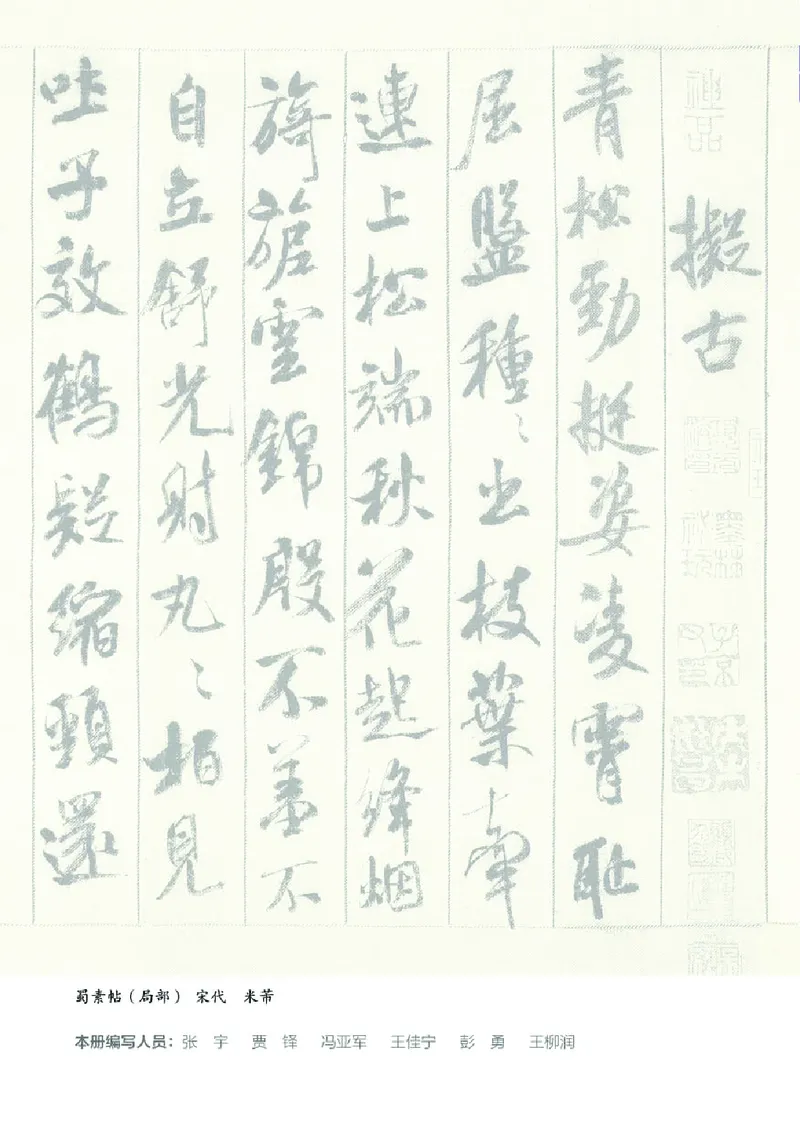 擬古
青松勁挺姿凌霄恥
屈盤種〻出枝葉牽
連上松端秋花起絳烟
旖旎雲錦殷不羞不
自立舒光射丸〻柏見
吐子效鶴疑縮頸還
蜀素帖（局部） 宋代 米芾
本册编写人员：张 宇 贾 铎 冯亚军 王佳宁 彭 勇 王柳润